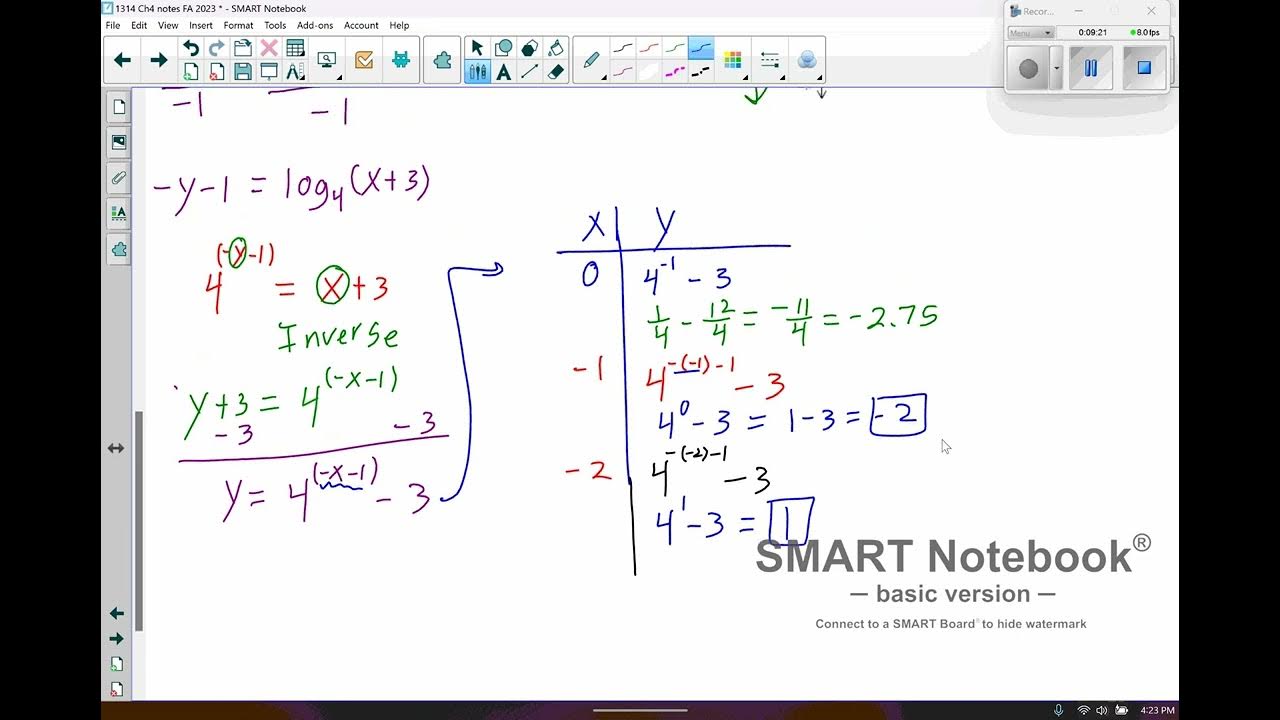 1314 Ch4 notes FA 2023 * - SMART Notebook
File Edit View Insert Format Tools Add-ons Account Help
Recor...
Menu 0:09:21 8.0 fps
-1 -1
-y-1 = log₄(x+3)
4^(-y-1) = x+3
Inverse
y+3 = 4^(-x-1)
-3 -3
y = 4^(-x-1) - 3
x | y
0 | 4^-1 - 3
1/4 - 12/4 = -11/4 = -2.75
-1 | 4^-(-1)-1 - 3
4^0 - 3 = 1-3 = -2
-2 | 4^-(-2)-1 - 3
4^1 - 3 = 1
SMART Notebook®
— basic version —
Connect to a SMART Board® to hide watermark
4:23 PM